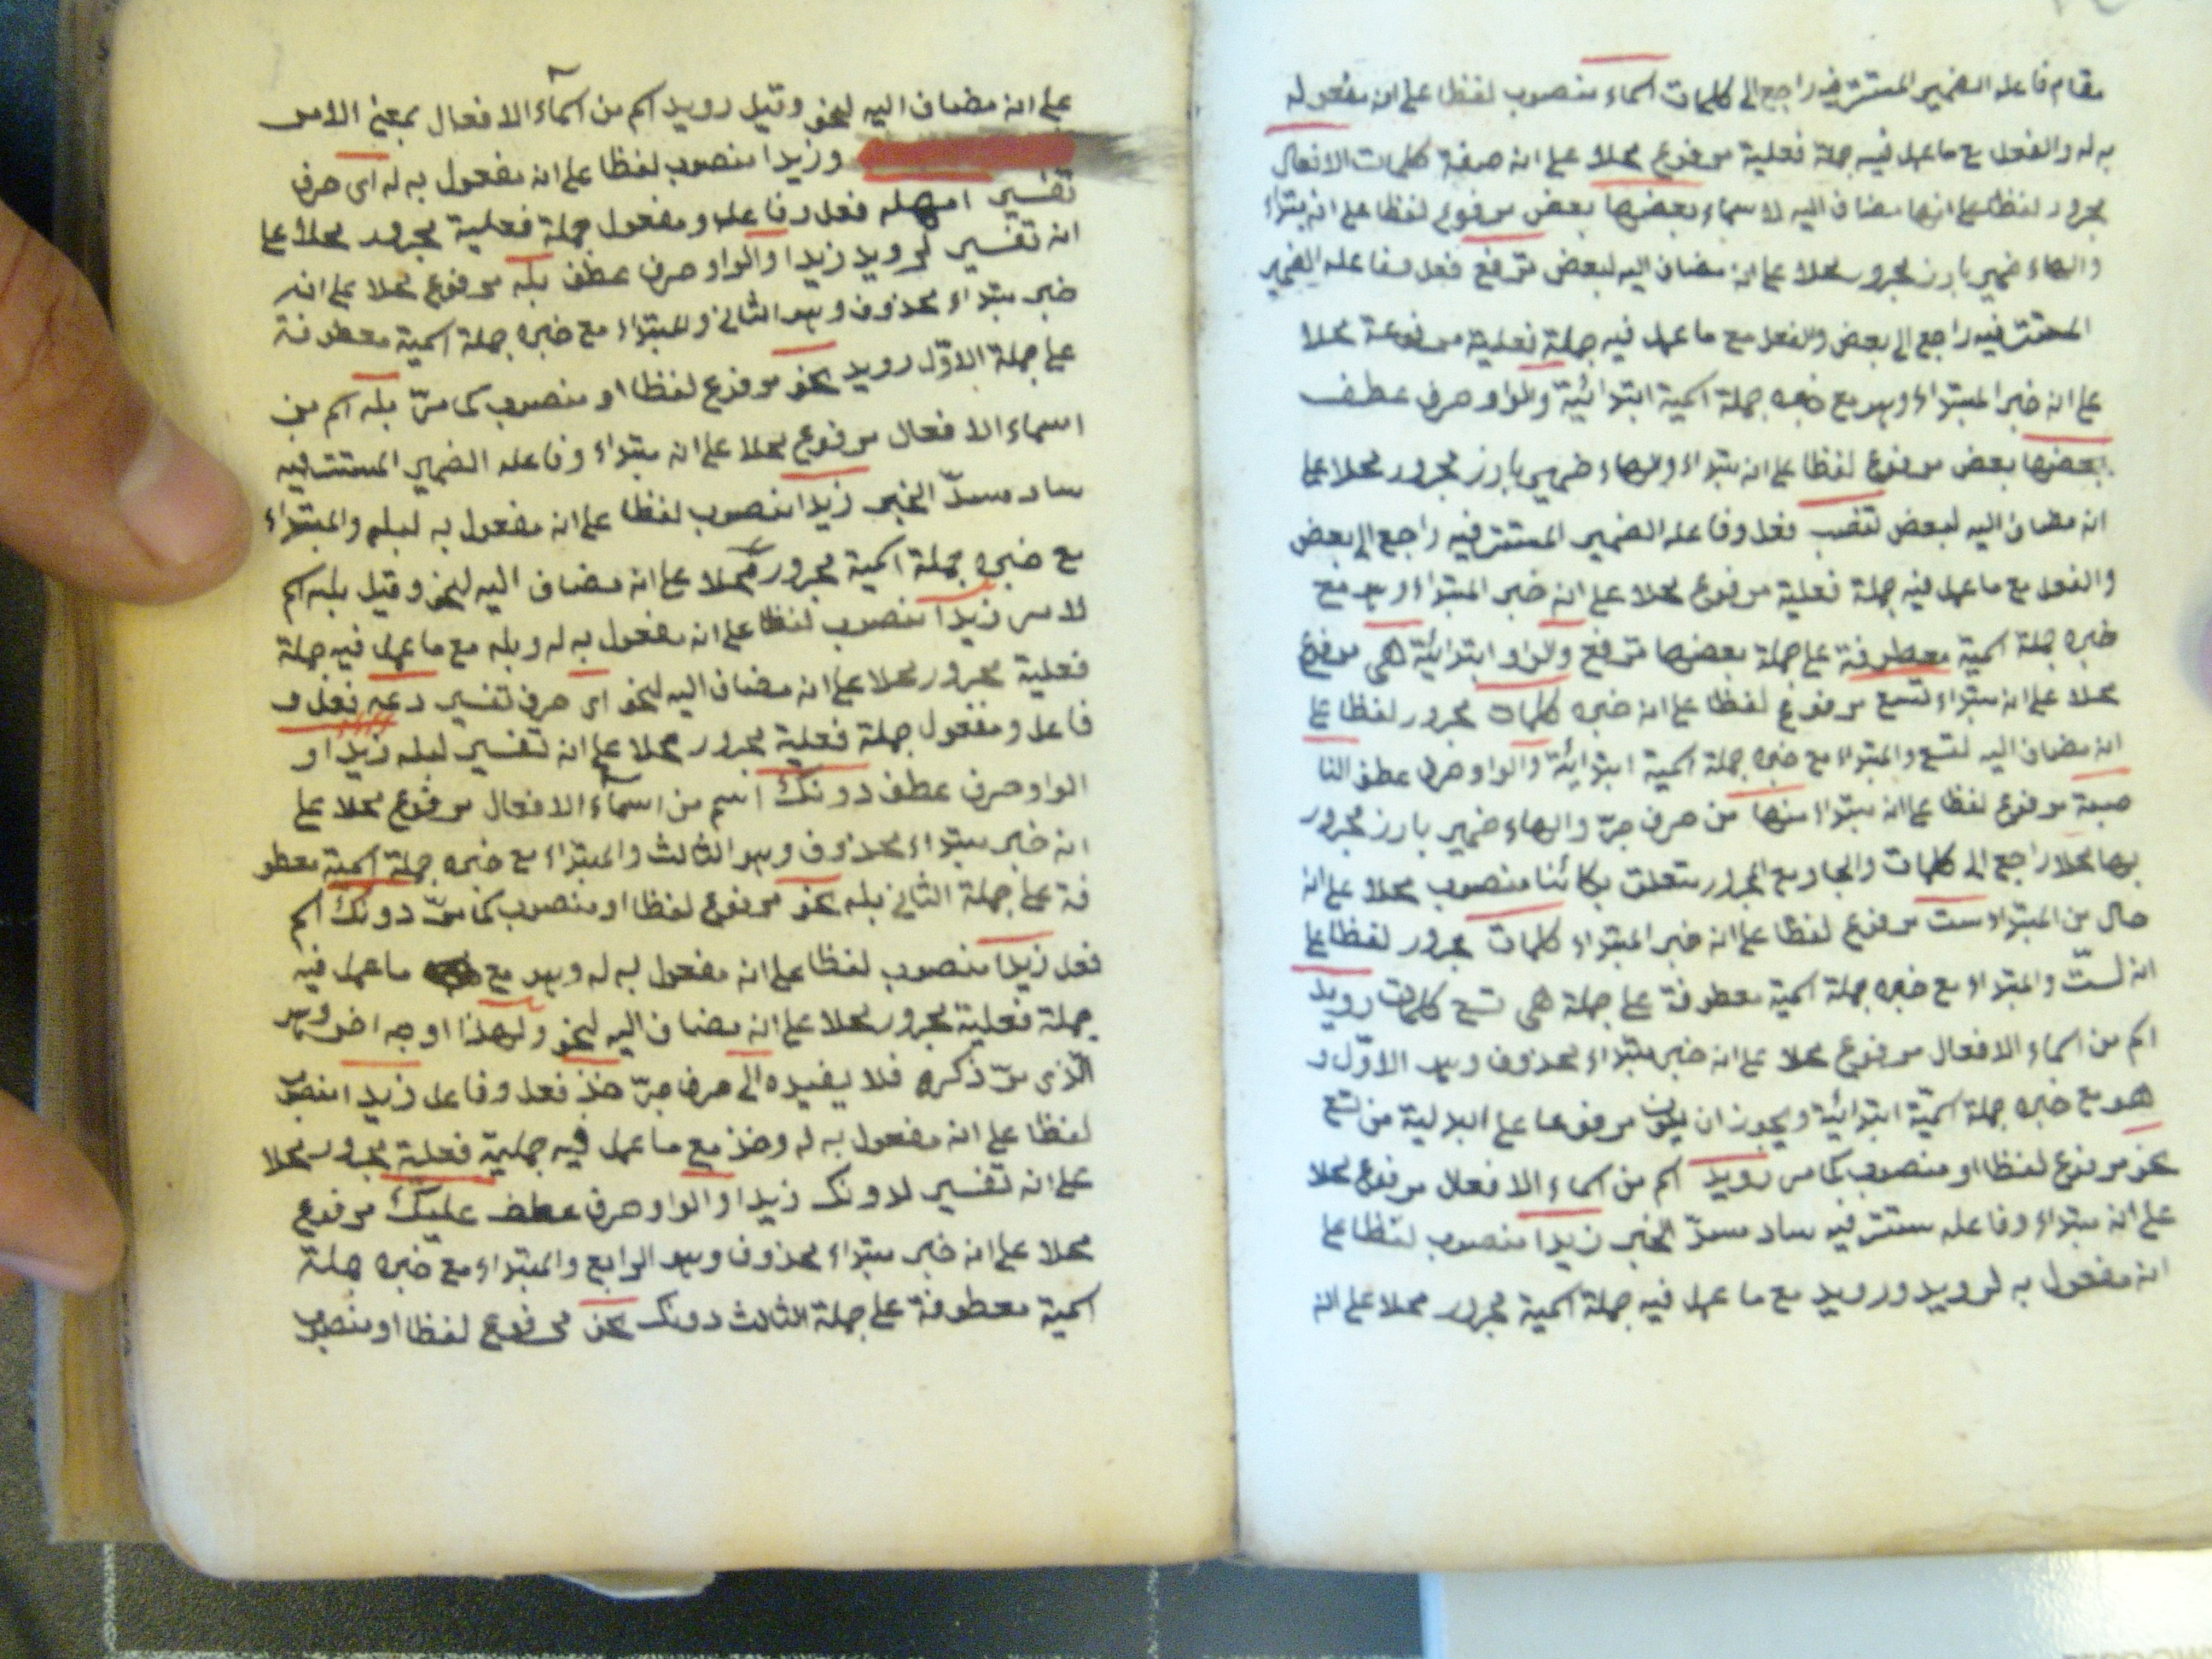 مقام فاعله الضمير المستتر فيه راجع الى كلمات اسماء منصوب لفظا على انه مفعول له
به له والفعل مع ما عمل فيه جملة فعلية مرفوع محلا على انه صفة كلمات الافعال
مجرور لفظا على انها مضاف اليه لاسماء بعضها بعض مرفوع لفظا على انه مبتداء
والهاء ضمير بارز مجرور محلا على انه مضاف اليه لبعض ترفع فعل وفاعله الضمير
المستتر فيه راجع الى بعض والفعل مع ما عمل فيه جملة فعلية مرفوعة محلا
على انه خبر المبتداء وهو مع خبره جملة اسمية ابتدائية والواو حرف عطف
بعضها بعض مرفوع لفظا على انه مبتداء والهاء ضمير بارز مجرور محلا على
انه مضاف اليه لبعض تنصب فعل وفاعله الضمير المستتر فيه راجع الى بعض
والفعل مع ما عمل فيه جملة فعلية مرفوع محلا على انه خبر المبتداء وهو مع
خبره جملة اسمية معطوفة على جملة بعضها ترفع والواو ابتدائية هى مرفوع
محلا على انه مبتداء لتسع مرفوع لفظا على انه خبره كلمات مجرور لفظا على
انه مضاف اليه لتسع والمبتداء مع خبره جملة اسمية ابتدائية والواو حرف عطف النا
صبة مرفوع لفظا على انه مبتداء منها من حرف جرّ والهاء ضمير بارز مجرور
بها محلا راجع الى كلمات والجار مع المجرور متعلق بكائنا منصوب محلا على انه
حال من المبتداء ست مرفوع لفظا على انه خبر المبتداء كلمات مجرور لفظا على
انه لستّ والمبتداء مع خبره جملة اسمية معطوفة على جملة هى تسع كلمات رويد
اسم من اسماء الافعال مرفوع محلا على انه خبر مبتداء محذوف وهو الاوّل و
هو مع خبره جملة اسميّة ابتدائية ويجوز ان يكون مرفوعا على البدلية من لتسع
نحو مرفوع لفظا او منصوب كما مر رويد اسم من اسماء الافعال مرفوع محلا
على انه مبتداء وفاعله مستتر فيه ساد مسدّ الخبر زيدا منصوب لفظا على
انه مفعول به لرويد ورويد مع ما عمل فيه جملة اسمية مجرور محلا على انه
على انه مضاف اليه لنحو وقيل رويد اسم من اسماء الافعال بمعنى الامر
وزيدا منصوب لفظا على انه مفعول به له اى حرف
تفسير امهله فعل وفاعل ومفعول جملة فعلية مجرور محلا على
انه تفسير لرويد زيدا والواو حرف عطف بله مرفوع محلا على انه
خبر مبتداء محذوف وهو الثانى والمبتداء مع خبره جملة اسمية معطوفة
على جملة الاوّل رويد نحو مرفوع لفظا او منصوب كما مرّ بله اسم من
اسماء الافعال مرفوع محلا على انه مبتداء وفاعله الضمير المستتر فيه
ساد مسدّ الخبر زيدا منصوب لفظا على انه مفعول به لبله والمبتداء
مع خبره جملة اسمية مجرور محلا على انه مضاف اليه لنحو وقيل بله اسم
لامر زيدا منصوب لفظا على انه مفعول به له وبله مع ما عمل فيه جملة
فعلية مجرور محلا على انه مضاف اليه لنحو اى حرف تفسير دعه فعل و
فاعل ومفعول جملة فعلية مجرور محلا على انه تفسير لبله زيدا و
الواو حرف عطف دونك اسم من اسماء الافعال مرفوع محلا على
انه خبر مبتداء محذوف وهو الثالث والمبتداء مع خبره جملة اسمية معطو
فة على جملة الثانى بله نحو مرفوع لفظا او منصوب كما مرّ دونك اسم
فعل زيدا منصوب لفظا على انه مفعول به له وهو مع ما عمل فيه
جملة فعلية مجرور محلا على انه مضاف اليه لنحو ولهذا اوجه اخر
الّذى مرّ ذكره فلا يفيده الى حرف جرّ خذ فعل وفاعل زيدا منصوب
لفظا على انه مفعول به له وخذ مع ما عمل فيه جملية فعلية مجرور محلا
على انه تفسير لدونك زيدا والواو حرف عطف عليك مرفوع
محلا على انه خبر مبتداء محذوف وهو الرابع والمبتداء مع خبره جملة
اسمية معطوفة على جملة الثالث دونك نحو مرفوع لفظا او منصوب